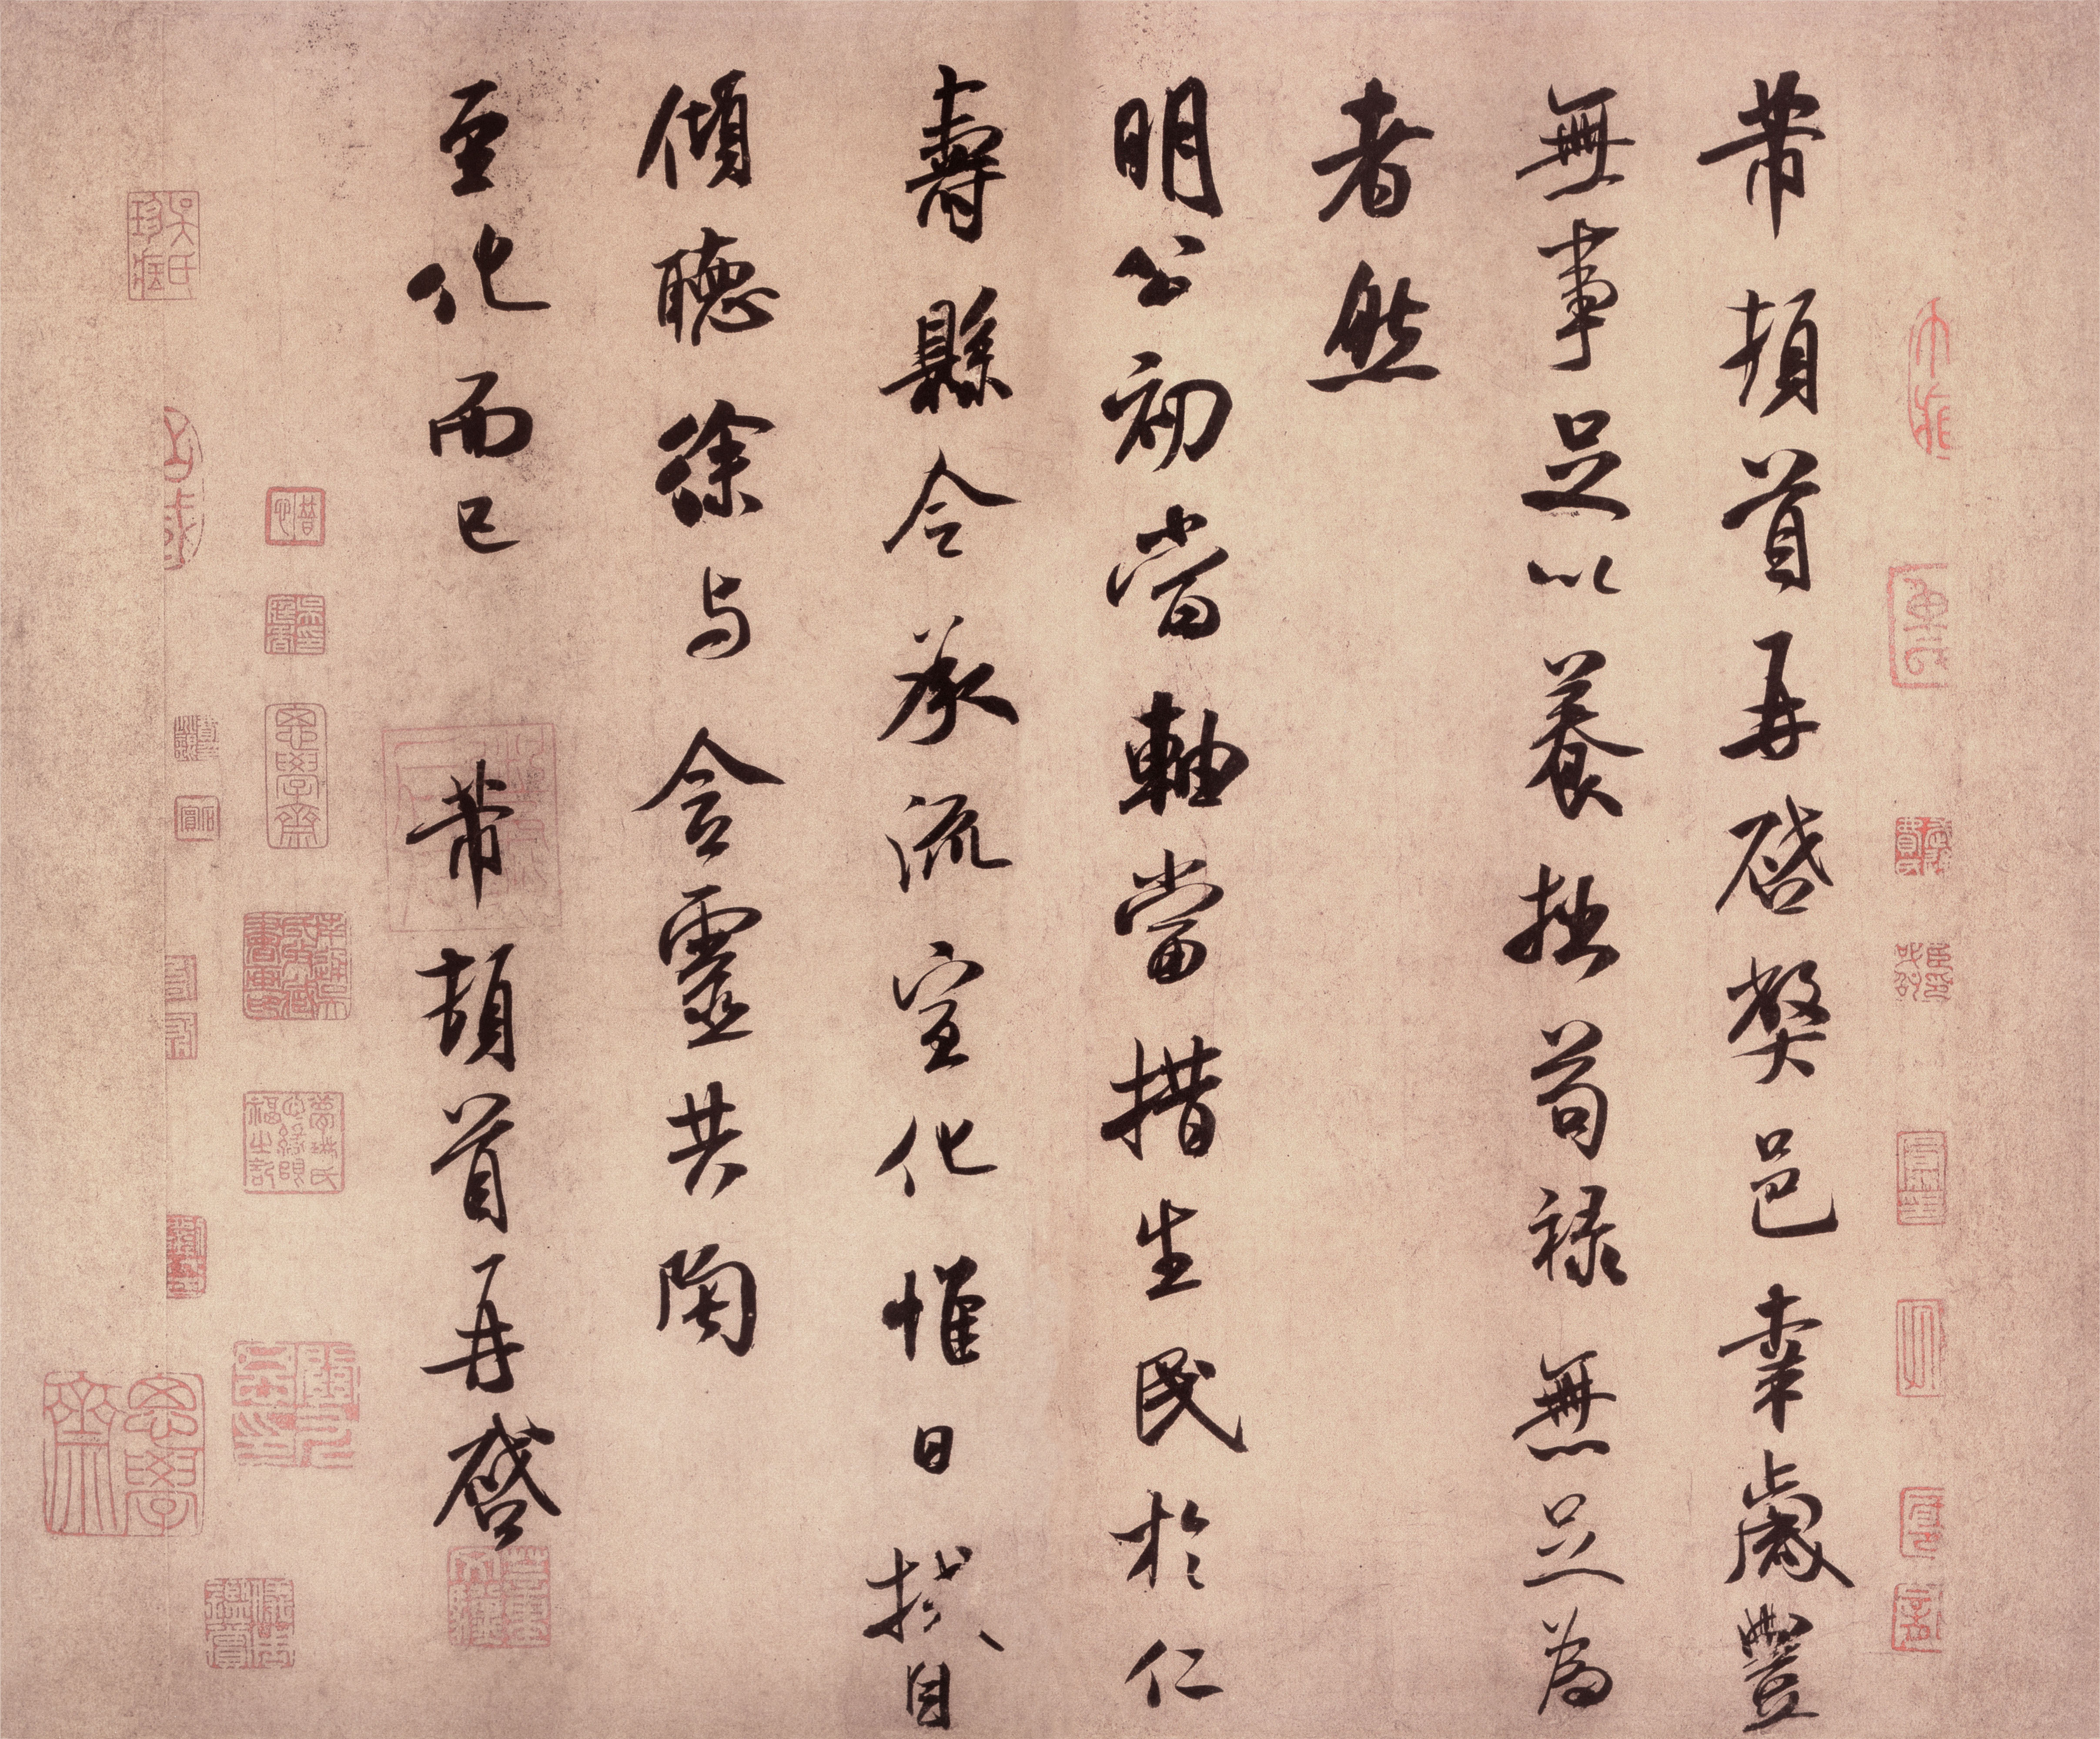 芾頓首再啓弊邑幸歲豐
無事足以養拙苟祿無足爲
者然
明公初當軸當措生民於仁
壽縣令承流宣化惟日拭目
傾聽徐与含靈共陶
至化而已 芾頓首再啓
吳氏珍藏
思學齋
思學齋